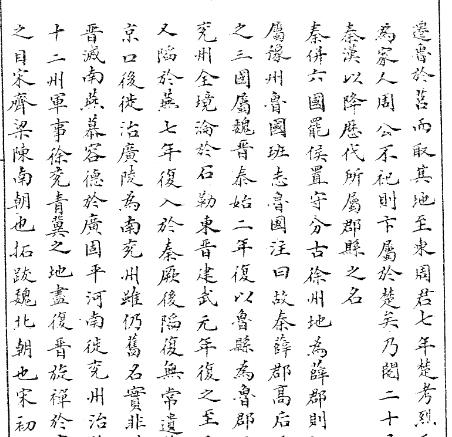 遷魯於莒而取其地至東周君七年楚考烈
為家人周公不祀則卞屬於楚矣乃閱二十
秦漢以降歷代所屬郡縣之名
秦併六國罷侯置守分古徐州地為薛郡則
屬豫州魯國班志魯國注曰故秦薛郡高后
之三國屬魏晉泰始二年復以魯縣為魯郡
兖州全境淪於石勒東晉建武元年復之至
又陷於燕七年復入於秦厥後陷復無常遺
京口後徙治廣陵為南兖州雖仍舊名實非
晉滅南燕慕容德於廣固平河南徙兖州治
十二州軍事徐兖青冀之地盡復晉旋禪於
之目宋齊梁陳南朝也拓跋魏北朝也宋初